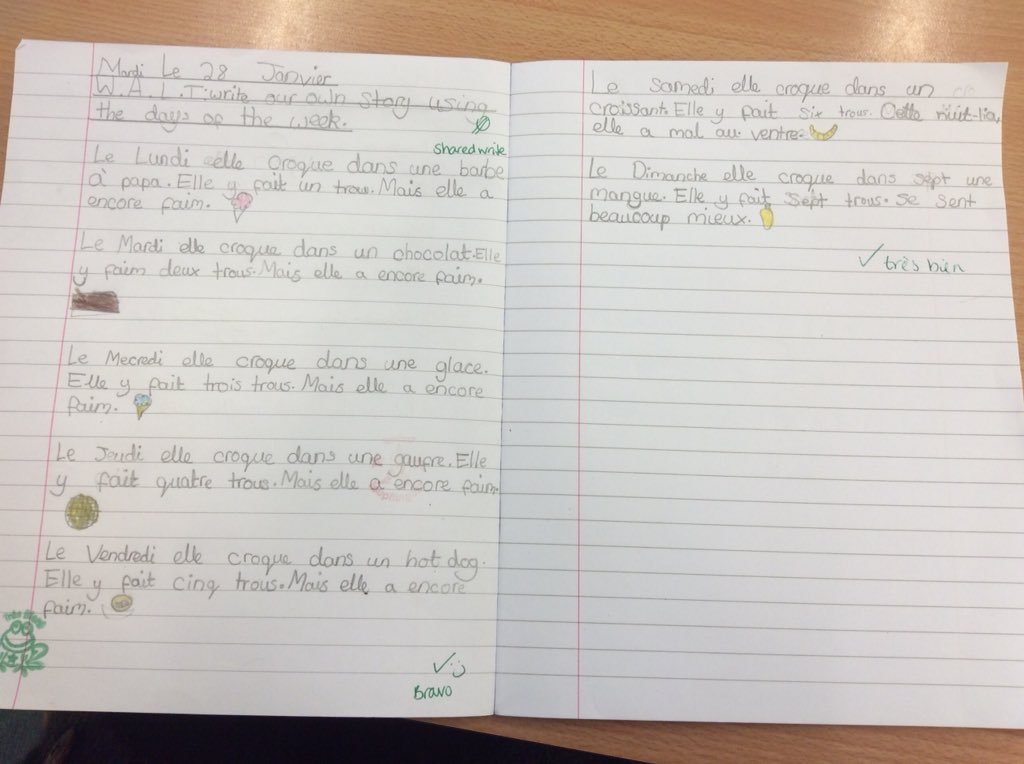 Mardi Le 28 Janvier
W.A.L.T: write our own Story using
the days of the week.
Shared write
Le Lundi elle croque dans une barbe
à papa. Elle y fait un trou. Mais elle a
encore faim.
Le Mardi elle croque dans un chocolat. Elle
y faim deux trous. Mais elle a encore faim.
Le Mecredi elle croque dans une glace.
Elle y fait trois trous. Mais elle a encore
faim.
Le Jeudi elle croque dans une gaufre. Elle
y fait quatre trous. Mais elle a encore faim.
Le Vendredi elle croque dans un hot dog.
Elle y fait cinq trous. Mais elle a encore
faim.
Bravo
Le Samedi elle croque dans un
croissant. Elle y fait six trous. Cette nuit-lia,
elle a mal au ventre.
Le Dimanche elle croque dans sept une
mangue. Elle y fait sept trous. Se sent
beaucoup mieux.
très bien